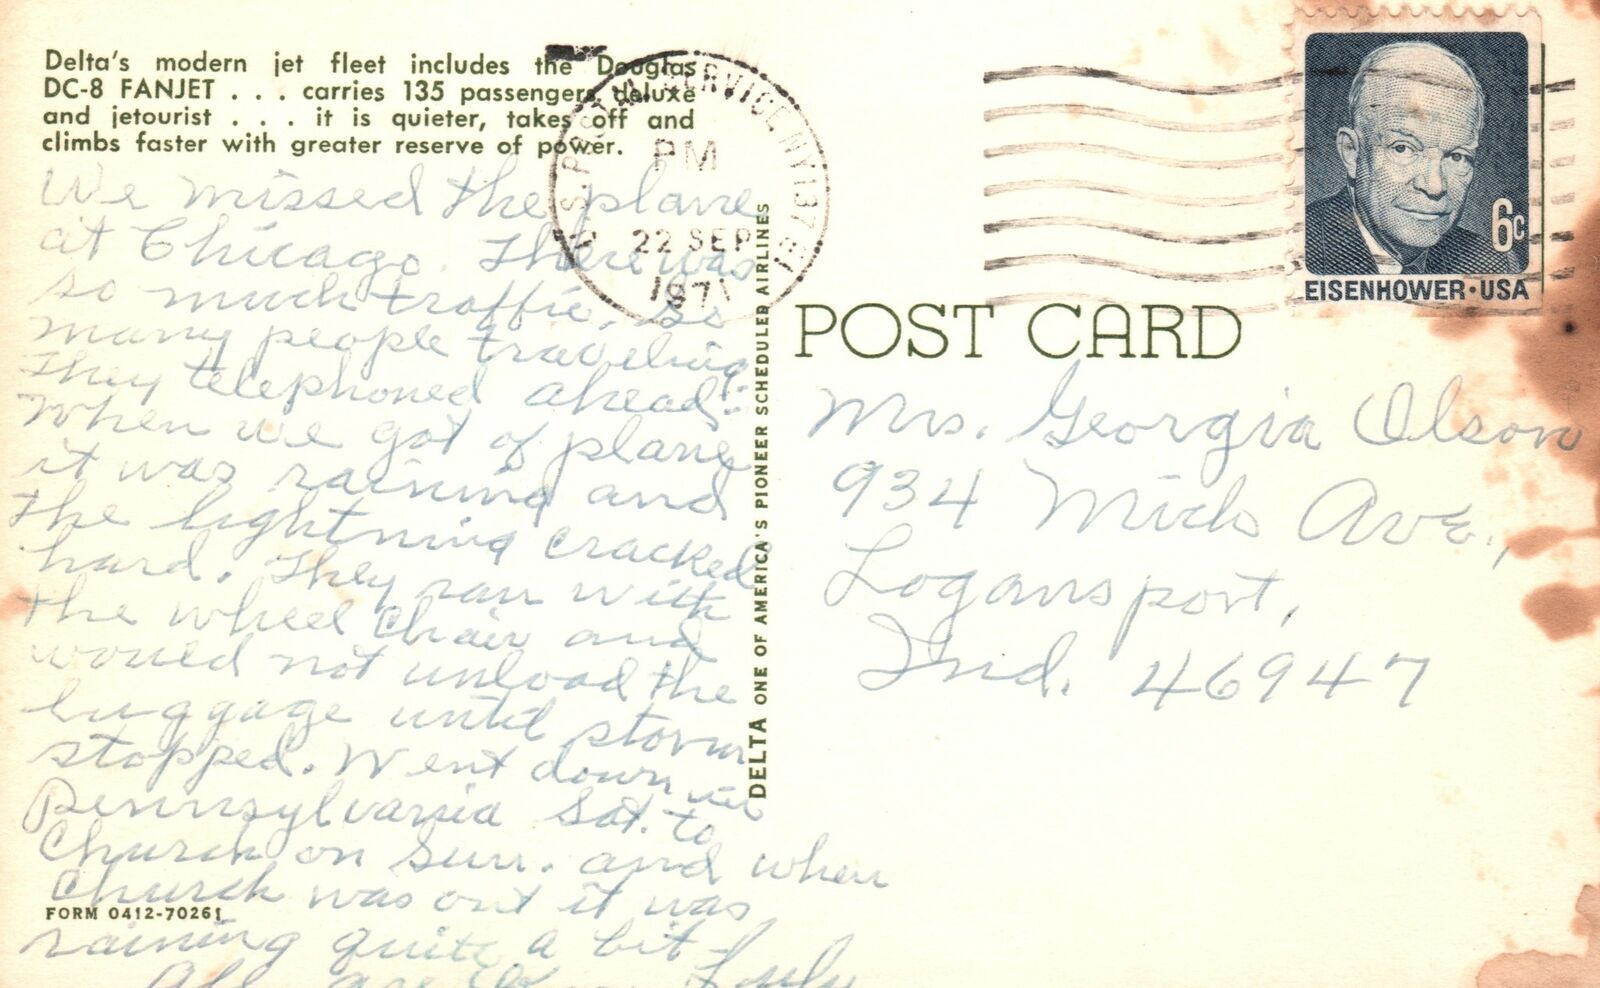 Delta's modern jet fleet includes the Douglas
DC-8 FANJET . . . carries 135 passengers, deluxe
and jetourist . . . it is quieter, takes off and
climbs faster with greater reserve of power.
We missed the plane
at Chicago. There was
so much traffic. So
many people traveling.
They telephoned ahead.
When we got of plane
it was raining and
the lightning cracked
hard. They ran with
the wheel chair and
would not unload the
luggage until storm
stopped. Went down
Pennsylvania Sat. to
Church on Sun. and when
Church was out it was
raining quite a bit
All are
FORM 0412-70261
DELTA ONE OF AMERICA'S PIONEER SCHEDULED AIRLINES
U.S. POSTAL SERVICE NY 137
PM
22 SEP
1971
6c
EISENHOWER·USA
POST CARD
Mrs. Georgia Olson
934 Mich Ave.,
Logansport,
Ind. 46947